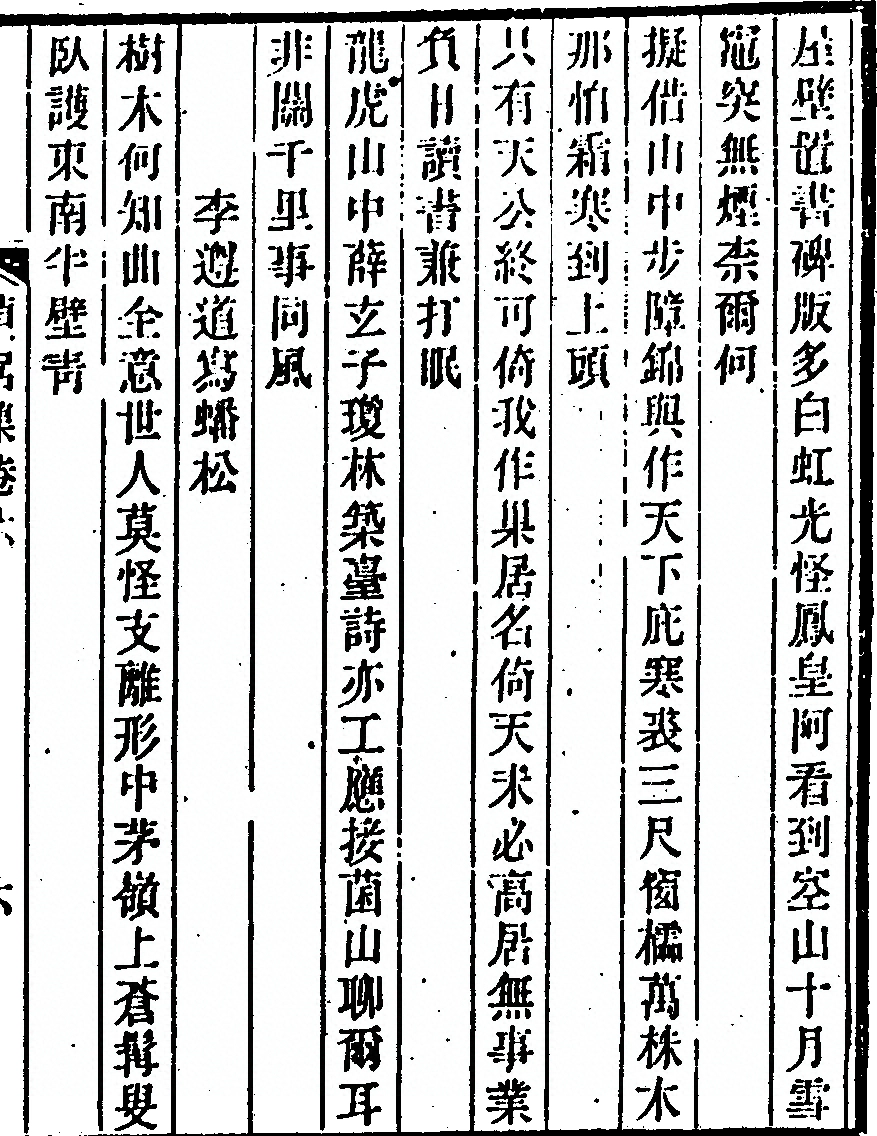 屋壁道書碑版多白虹光怪鳳皇阿看到空山十月雪
竈突無煙柰爾何
擬借山中步障錦與作天下庇寒裘三尺窗檽萬株木
那怕霜寒到上頭
只有天公終可倚我作巢居名倚天未必高居無事業
負日讀書兼打眠
龍虎山中薛玄子瓊林築臺詩亦工應接菌山聊爾耳
非關千里事同風
李遵道寫蟠松
樹木何知曲全意世人莫怪支離形中茅嶺上蒼髯叟
臥護東南半壁靑
貞居集卷六
六